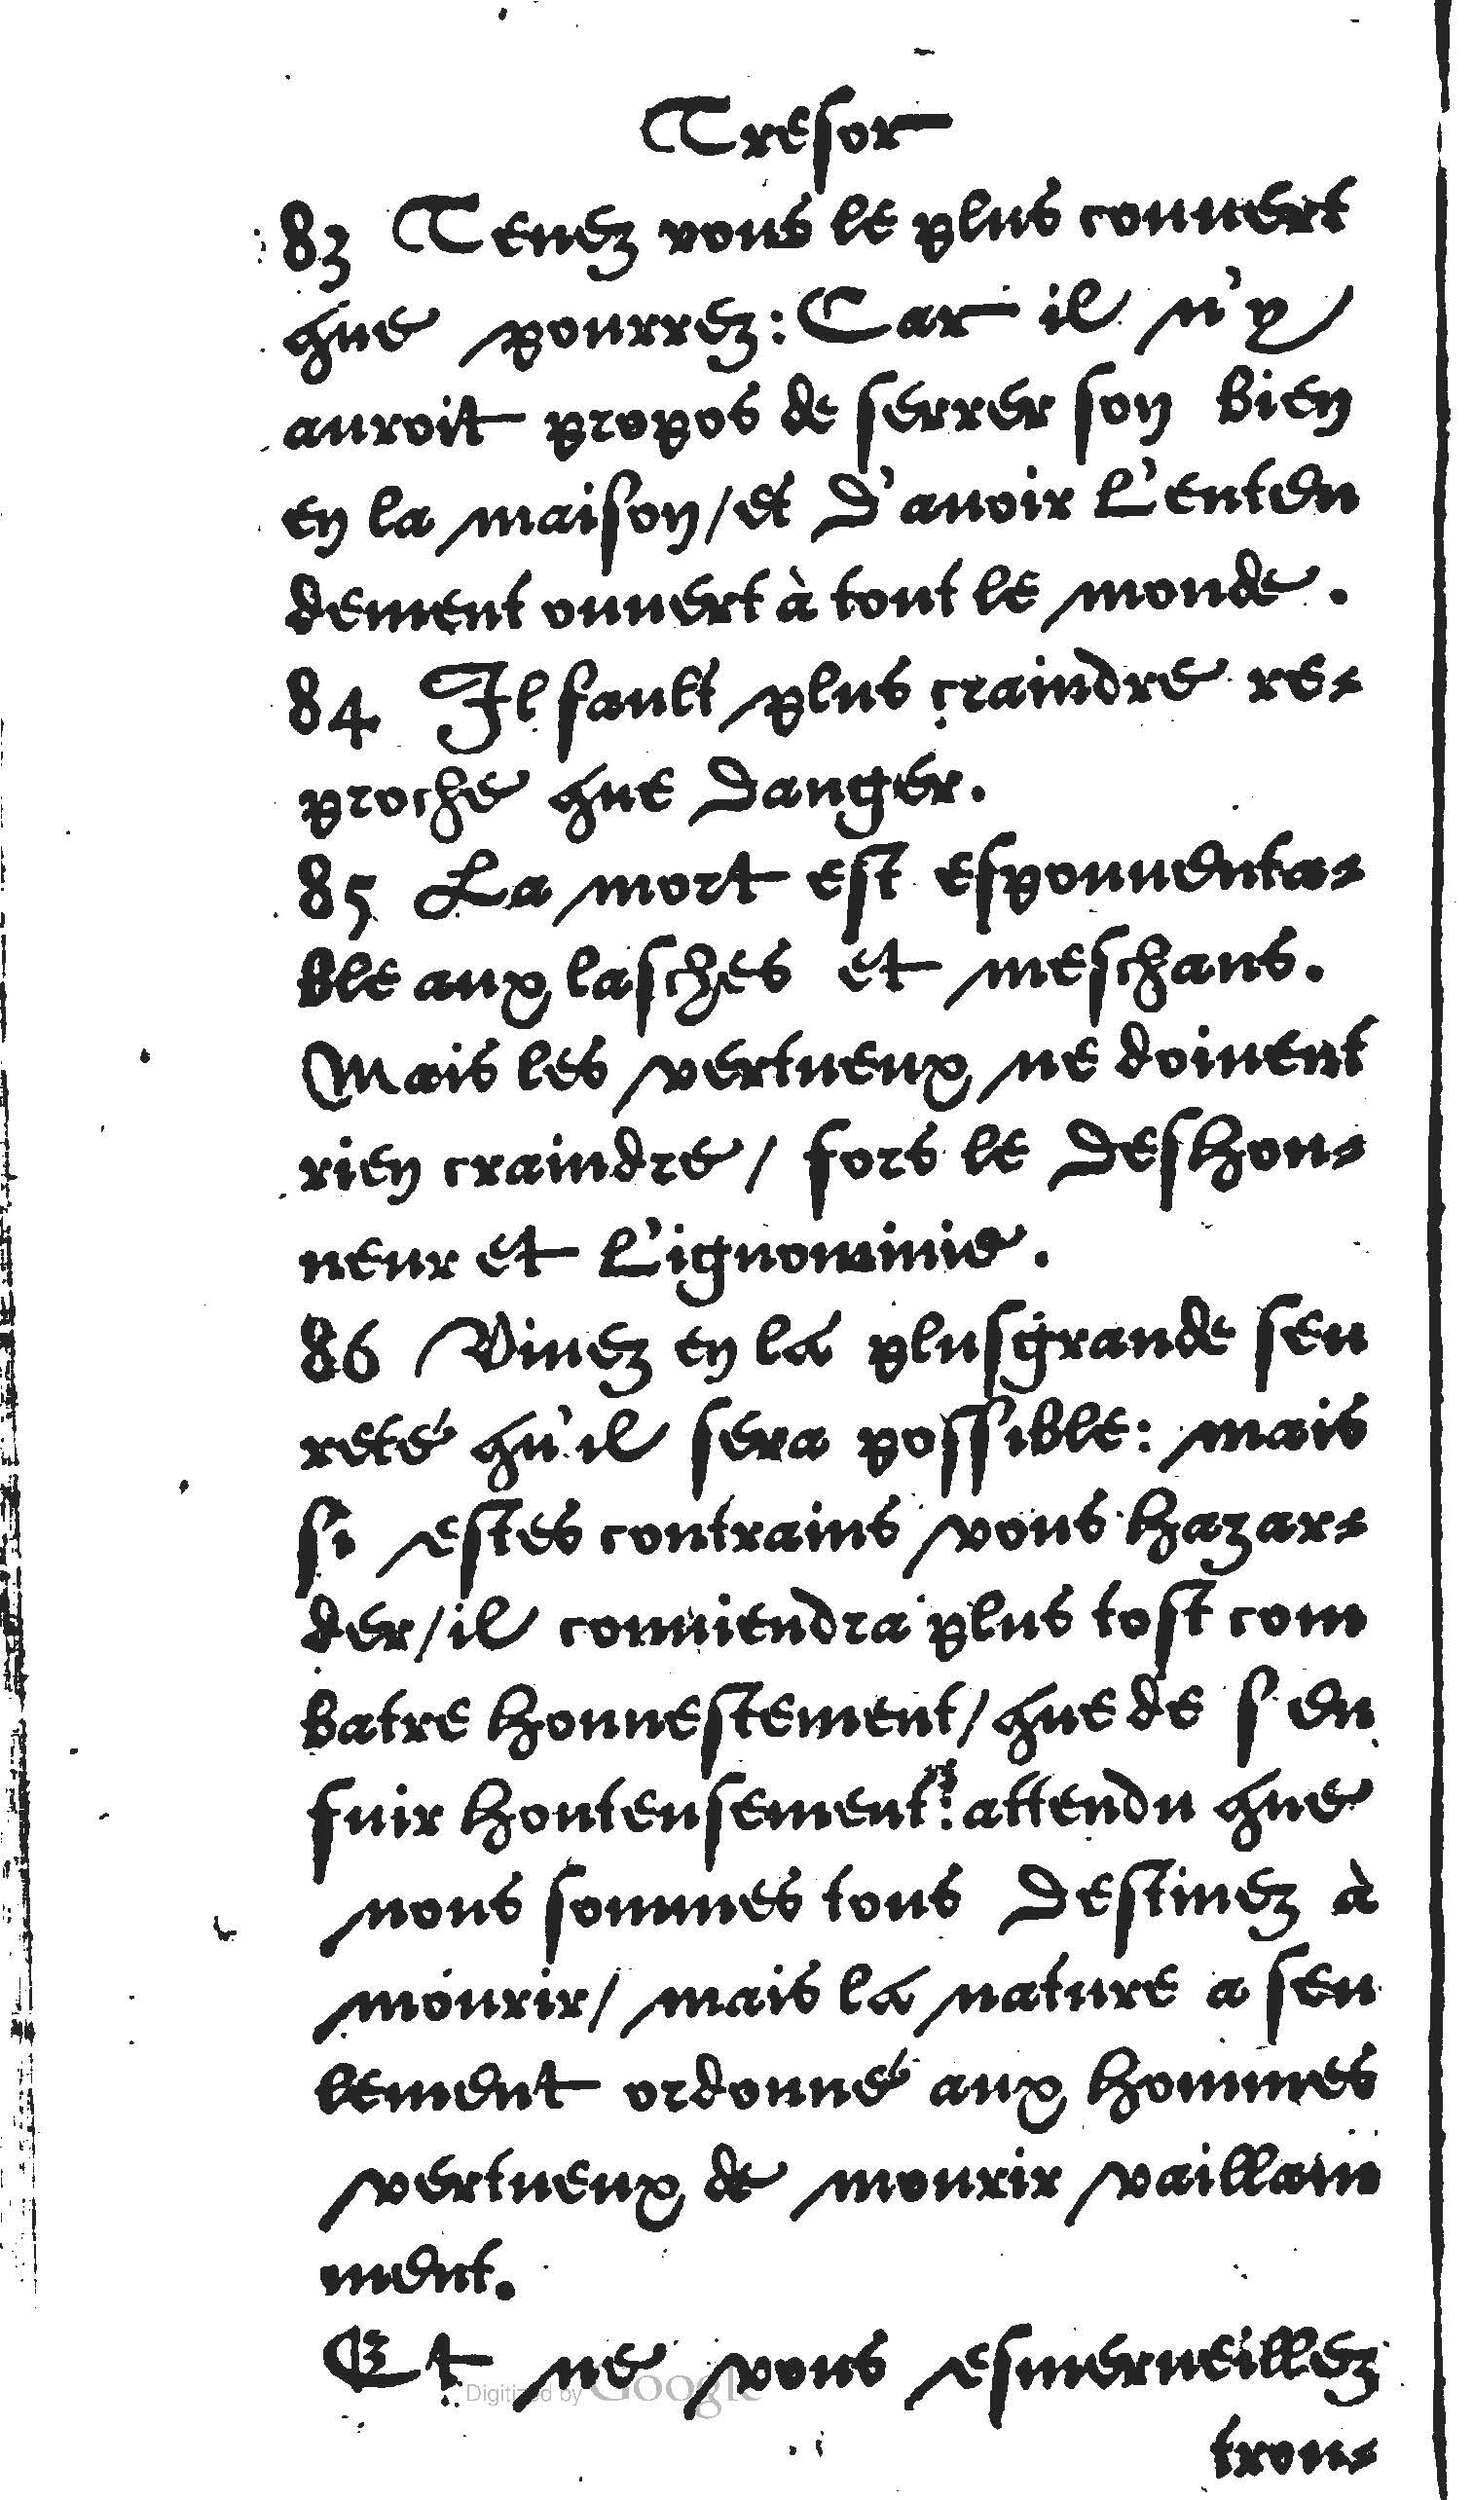 Tresor
83 Tenez vous le plus couuert
que pourrez: Car il n'y
auroit propos de serrer son bien
en la maison/et d'auoir l'enten
dement ouuert à tout le monde.
84 Il fault plus craindre re-
proche que danger.
85 La mort est espouuenta-
ble aux lasches et meschans.
Mais les vertueux ne doiuent
rien craindre/ fors le deshon-
neur et l'ignominie.
86 Viuez en la plusgrande seu
reté qu'il sera possible: mais
si estes contrains vous hazar-
der/il conuiendra plus tost com
batre honnestement/que de s'en
fuir honteusement: attendu que
nous sommes tous destinez à
mourir/ mais la nature a seu
lement ordonné aux hommes
vertueux de mourir vaillam
ment.
Et ne vous esmerueillez
Digitized by Google
trou-